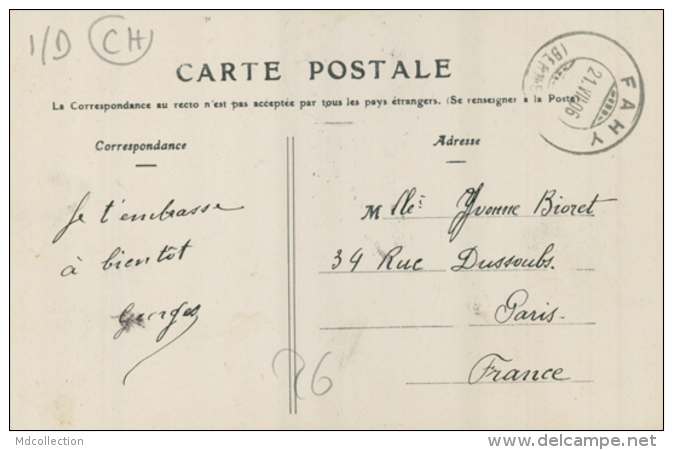 1/D CH
CARTE POSTALE
La Correspondance au recto n'est pas acceptée par tous les pays étrangers. (Se renseigner à la Poste)
FAHY
(BERNE)
21.VII.06
Correspondance
Adresse
Je t'embrasse
à bientôt
Georges
Mlle Yvonne Bioret
34 Rue Dussoubs.
Paris-
France
26
Mdcollection
delcampe.net